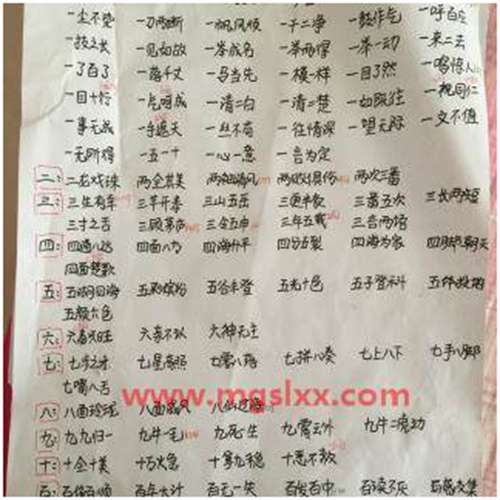 一尘不染 一刀两断 一帆风顺 一干二净 一鼓作气 一呼百应
一技之长 一见如故 一举成名 一举两得 一举一动 一来二去
一了百了 一落千丈 一马当先 一模一样 一目了然 一鸣惊人
一目十行 一气呵成 一清二白 一清二楚 一如既往 一视同仁
一事无成 一手遮天 一丝不苟 一往情深 一望无际 一文不值
一无所得 一五一十 一心一意 一言为定
二: 二龙戏珠 两全其美 两袖清风 两败俱伤 两次三番
三: 三生有幸 三羊开泰 三山五岳 三更半夜 三番五次 三长两短
三寸之舌 三顾茅庐 三令五申 三年五载 三言两语
四: 四通八达 四面八方 四海升平 四分五裂 四海为家 四脚朝天
四面楚歌
五: 五湖四海 五彩缤纷 五谷丰登 五光十色 五子登科 五体投地
五颜六色
六: 六畜兴旺 六亲不认 六神无主
七: 七步之才 七星高照 七零八落 七拼八凑 七上八下 七手八脚
七嘴八舌
www.mgslxx.com
八: 八面玲珑 八面威风 八仙过海
九: 九九归一 九牛一毛 九死一生 九霄云外 九牛二虎之力
十: 十全十美 十万火急 十拿九稳 十恶不赦
百: 百依百顺 百年大计 百发百中 百读不厌